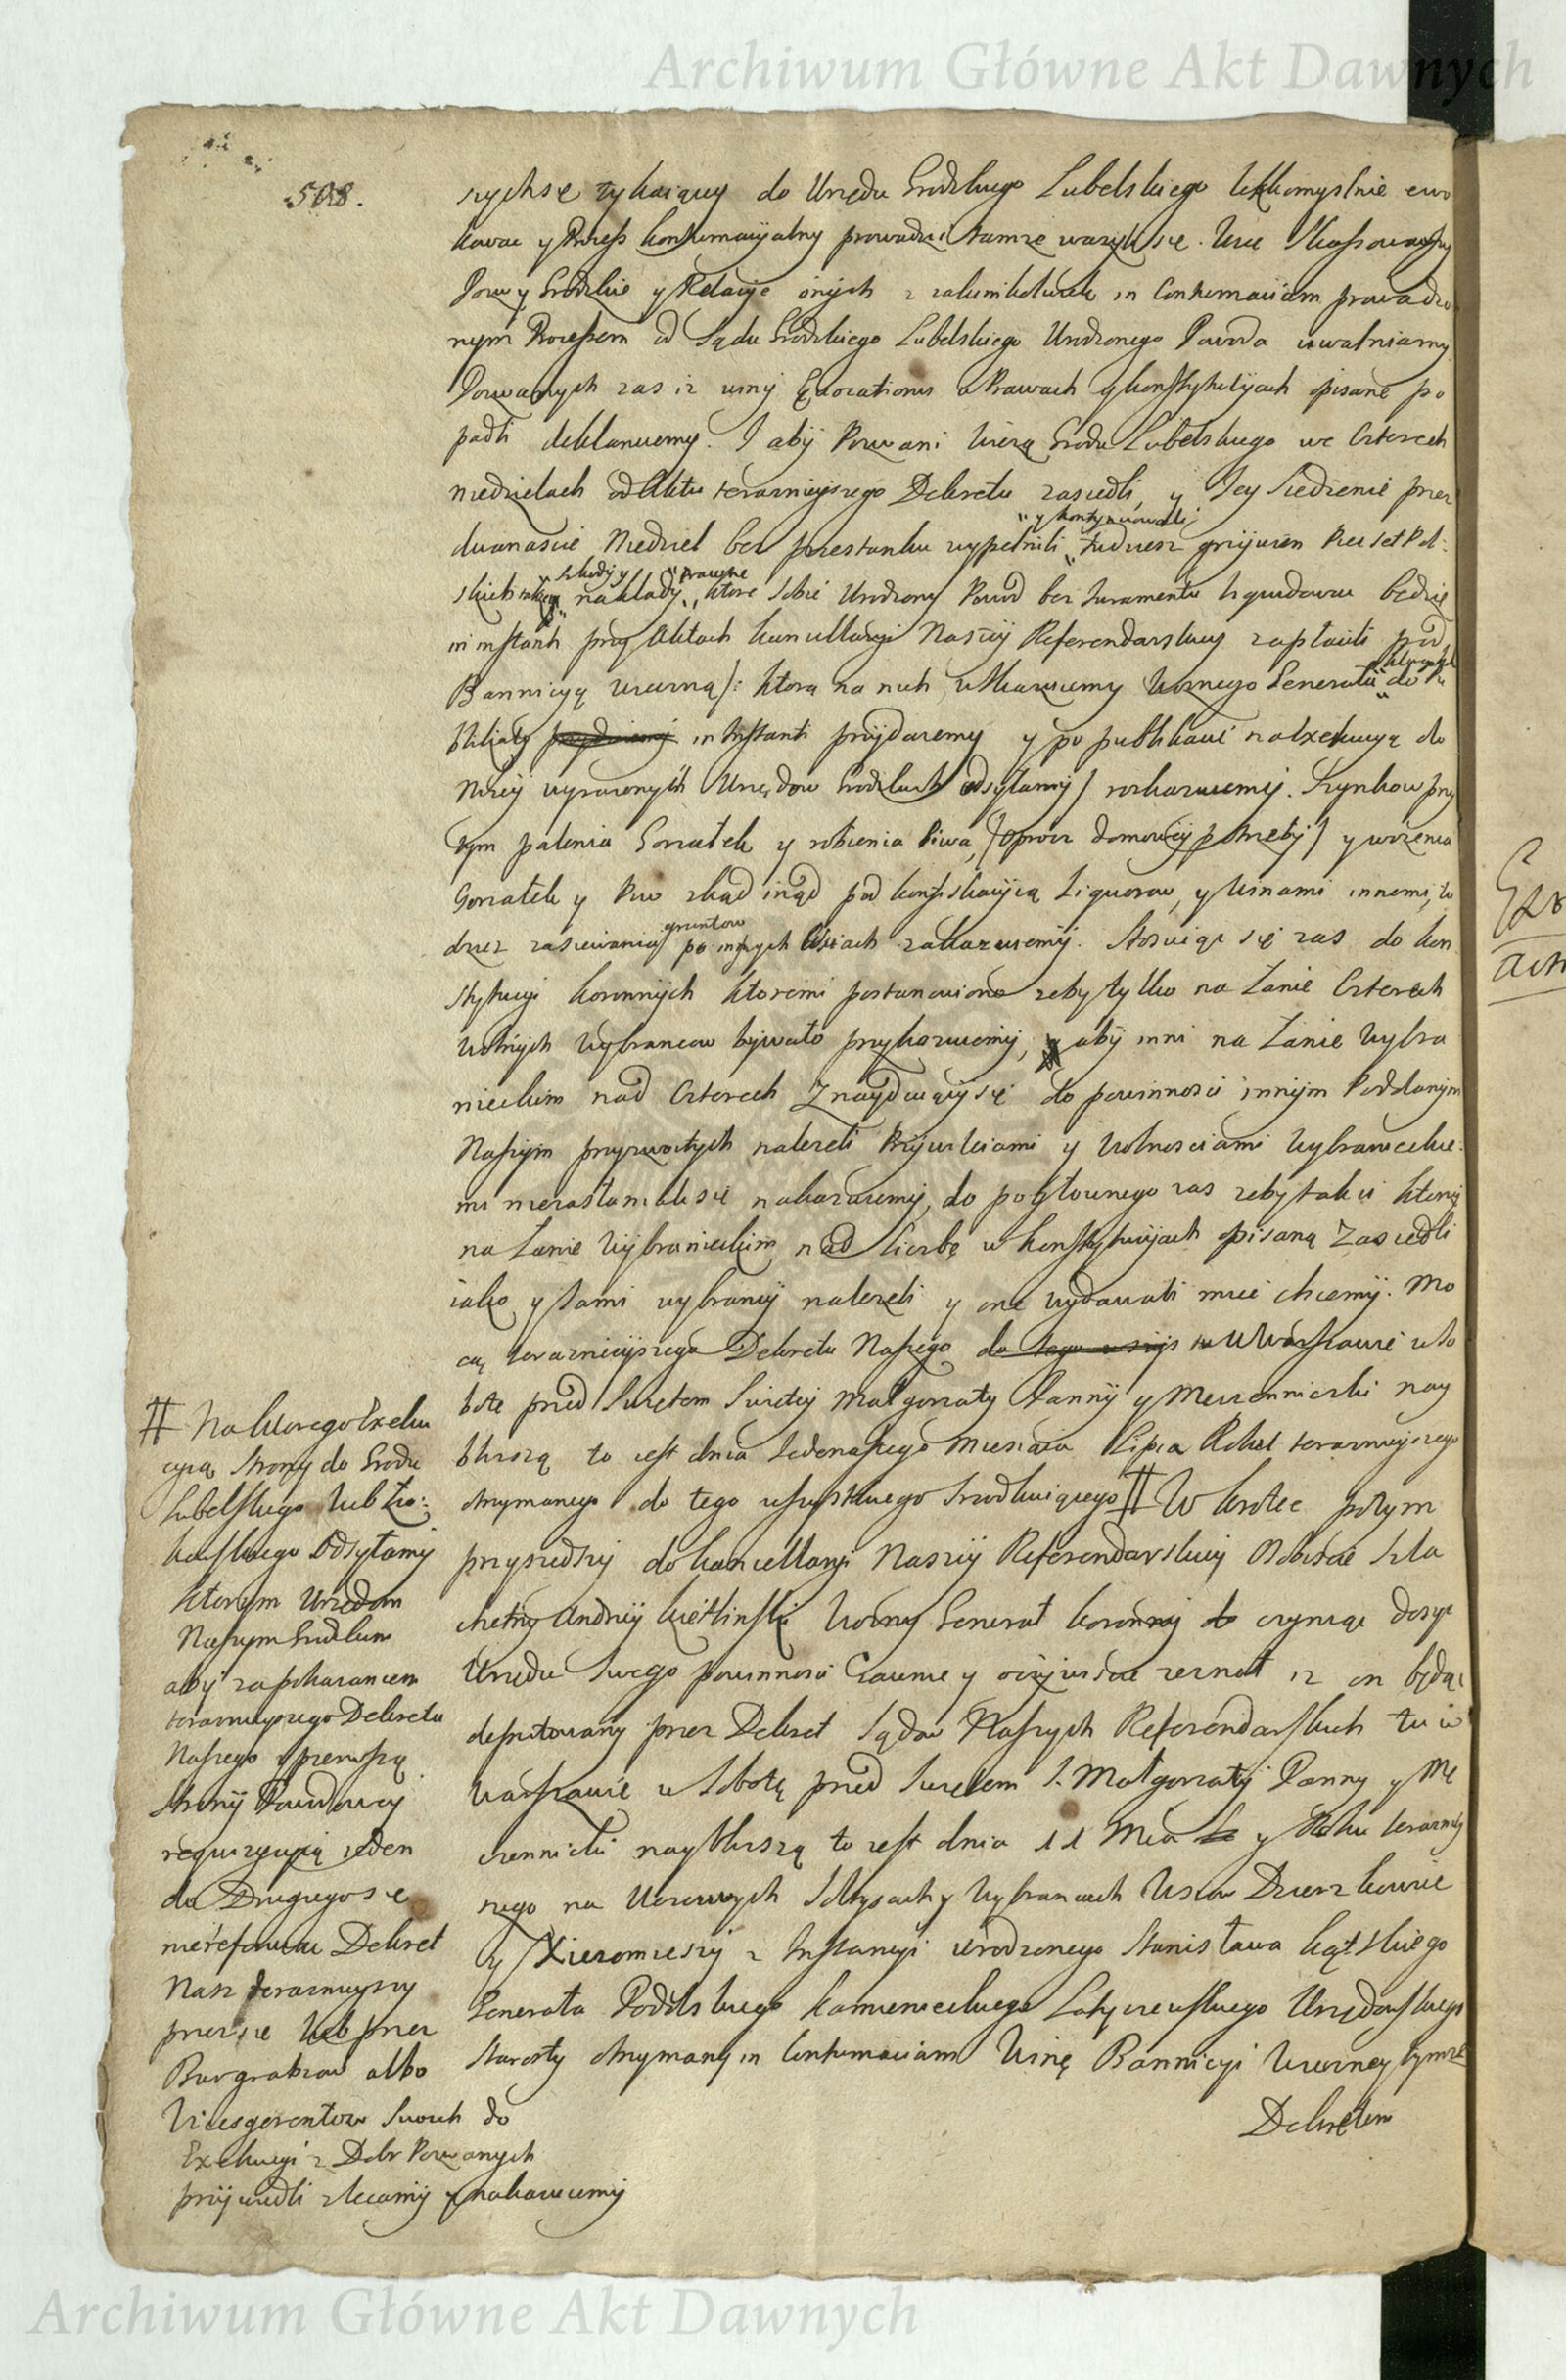 Archiwum Główne Akt Dawnych
508.
szych się tykaiący do Urzędu Grodzkiego Lubelskiego lekkomyslnie ewo
kować y Process kontumacyalny prowadzić tamze wazyli się.
Pozwy Grodzkie y Relacye onych z in Contumaciam prowadzo
nym Processem od Sądu Grodzkiego Lubelskiego Urodzonego Powoda uwalniamy
Pozwanych zas iz winy Evocationis w Prawach y konstytucyach opisane po
padli deklaruiemy. I aby Pozwani Wiezą Grodu Lubelskiego we czterech
niedzielach od Aktu teraznieyszego Dekretu zasiedli, y Iey siedzenie przez
"y kontynuowali
dwanascie Niedziel bez przestanku wypełnili tudziesz grzywien Pol
szkody y " prawne
skich nakłady, ktore sobie Urodzony Powod bez Iuramentu liquidować będzie
in instanti przy Aktach kancellaryi Naszey Referendarskiey zapłacili pod
Bannicyą wieczną /: ktora na nich wskazuiemy Woznego Generała do Pu
blikaty in instanti przydaiemy y po publikacie na Exekucyą do
Nizey wyrazonych Urzędow Grodzkich odsyłamy / rozkazuiemy. Szynkow przy
tym palenia Gorzałek y robienia Piwa, (oprocz domowey potrzeby) y wozenia
Gorzałek y Piw zkąd inąd pod konfiskacyą Liquorow, y winami innemi, tu
gruntow
dziez zasiewania po innych Wsiach zakazuiemy. Stosuiąc się zas do kon
stytucyi koronnych ktoremi postanowiono zeby tylko na Łanie Czterech
Wolnych Wybrancow bywało przykazuiemy, aby inni na Łanie Wybra
nieckim nad Czterech Znayduiący się do powinnosci innym Poddanym
Naszym przyzwoitych nalezeli Przywileiami y Wolnosciami Wybranieckie
mi niezasłaniali się nakazuiemy, do pogłownego zas zeby tak ci ktorzy
na Łanie Wybranieckim nad liczbę w konstytucyach opisaną Zasiedli
iako y sami wybrancy nalezeli y one wydawali mieć chcemy. Mo
cą teraznieyszego Dekretu Naszego w Warszawie w So
botę przed Swiętem Swiętey Małgorzaty Panny y Męczenniczki nay
blizszą to iest dnia Iedenastego Miesiąca Lipca Roku teraznieyszego
otrzymanego do tego wszystkiego # W krotce potym
przyszedszy do kancellaryi Naszey Referendarskiey Osobiscie Szla
chetny Andrzey Woźny Generał koronny czyniąc dosyć
Urzędu Swego powinnosci Iawnie y oczywiscie zeznał iz on będąc
deputowany przez Dekret Sądow Naszych Referendarskich tu w
Warszawie w Sobotę przed Swiętem S. Małgorzaty Panny y Mę
czenniczki nayblizszą to iest dnia 11 Mca y Roku terazniey
szego na Uczciwych Sołtysach y Wybrancach Wsiow Dzierzkowic
y Xięzomieszy z Instancyi Urodzonego Stanisława kątskiego
Generała Podolskiego kamienieckiego Latyczewskiego Urzędowskiego
Starosty otrzymany in Contumaciam Winę Bannicyi Wieczney tymze
Dekretem
# Na ktorego Exeku
cyią Strony do Grodu
Lubelskiego lub
Odsyłamy
ktorym Urzędom
Naszym Grodzkim
aby za pokazaniem
teraznieyszego Dekretu
Naszego y pierwszą
Strony Powodowey
requizycyią ieden
do Drugiego się
niereferuiąc Dekret
Nasz teraznieyszy
przez się lub przez
Burgrabiow albo
Vicesgerentow Swoich do
Exekucyi z Dobr Pozwanych
przywiedli zlecamy y nakazuiemy
Archiwum Główne Akt Dawnych